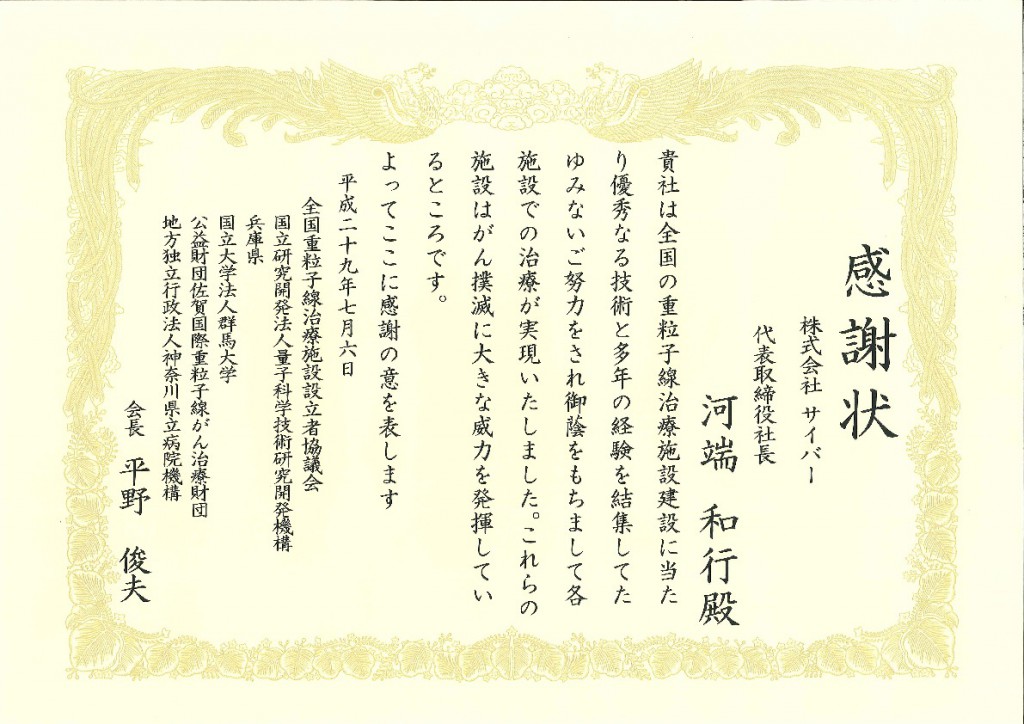 感謝状
株式会社 サイバー
代表取締役社長
河端 和行殿
貴社は全国の重粒子線治療施設建設に当た
り優秀なる技術と多年の経験を結集してた
ゆみないご努力をされ御蔭をもちまして各
施設での治療が実現いたしました。これらの
施設はがん撲滅に大きな威力を発揮してい
るところです。
よってここに感謝の意を表します
平成二十九年七月六日
全国重粒子線治療施設設立者協議会
国立研究開発法人量子科学技術研究開発機構
兵庫県
国立大学法人群馬大学
公益財団佐賀国際重粒子線がん治療財団
地方独立行政法人神奈川県立病院機構
会長 平野 俊夫